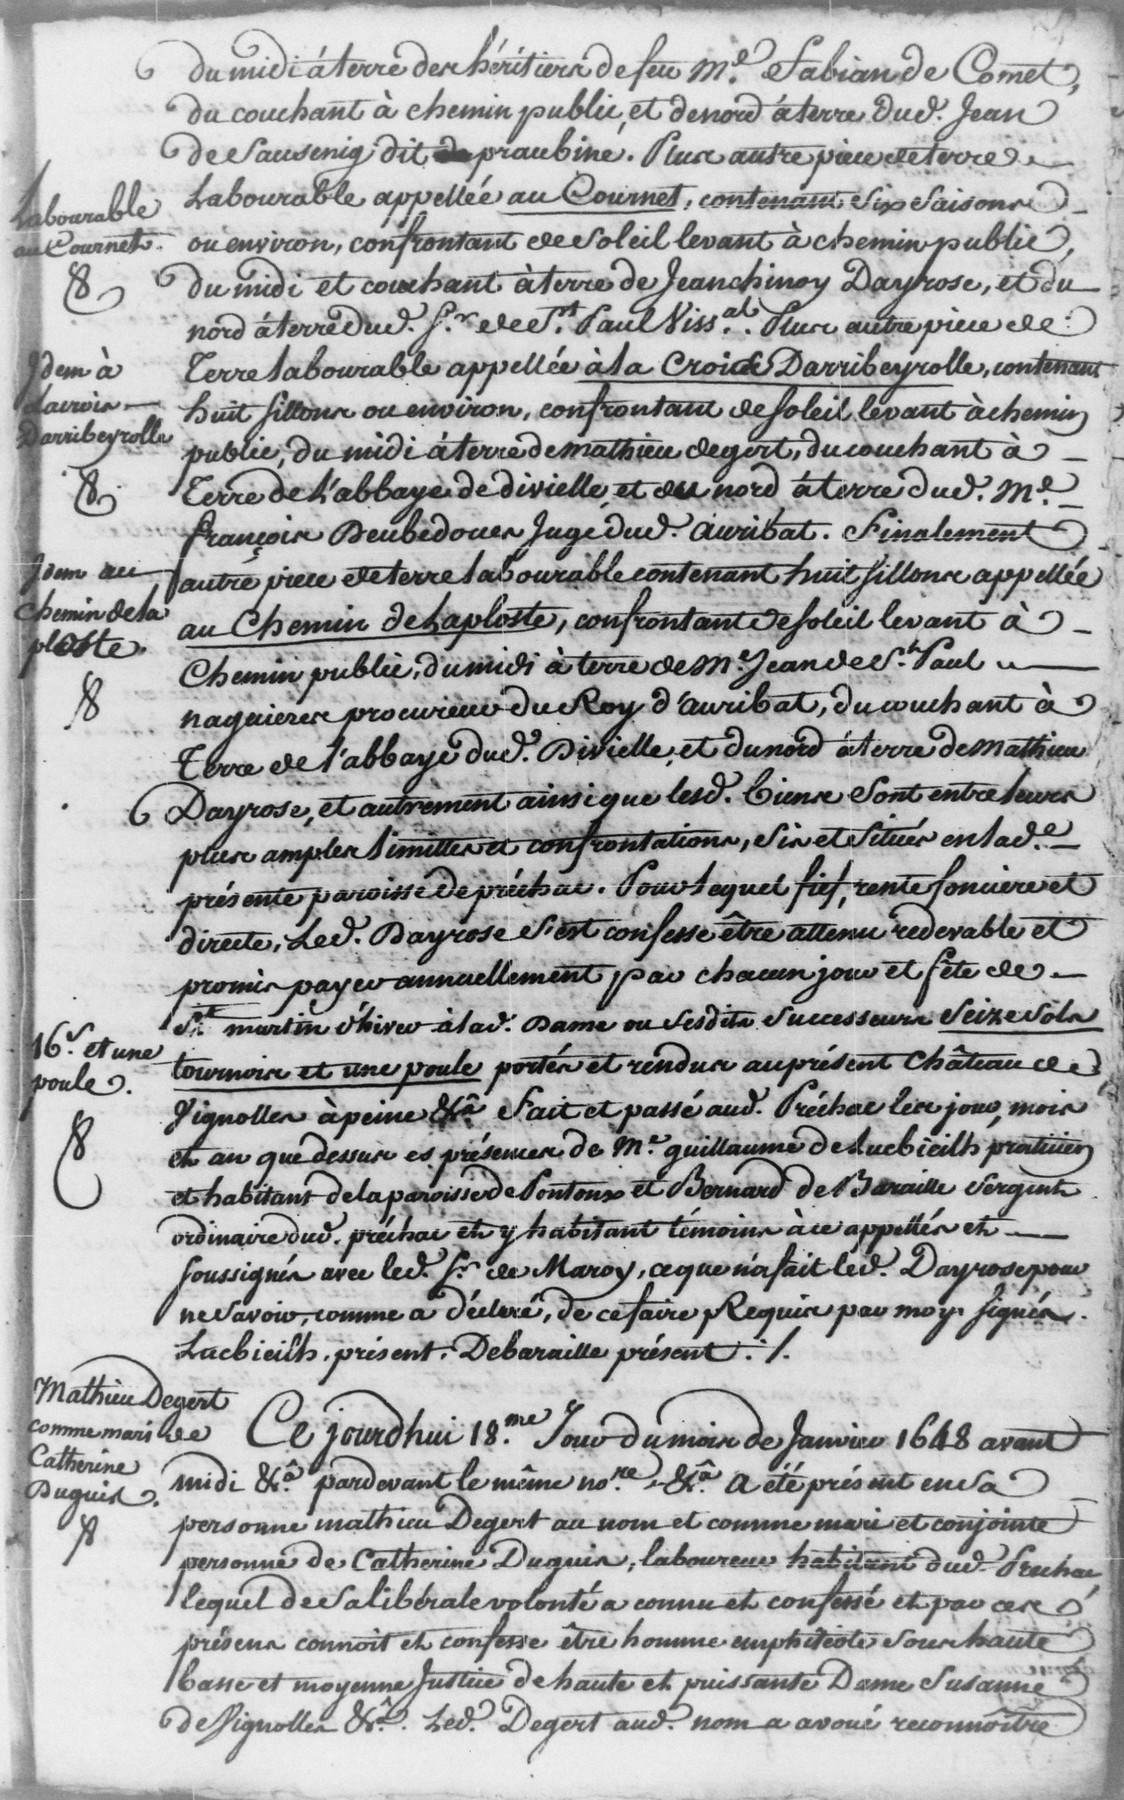 du midi à terre des héritiers de feu Me. Fabian de Comet,
du couchant à chemin public, et de nord à terre dud. Jean
de Sausenig dit praubine. Plus autre piece de terre
Labourable appellée au Cournet, contenant six Saisons
Labourable
au Cournet.
ou environ, confrontant de Soleil levant à chemin public,
du midi et couchant à terre de Jeanchinoy Dayrose, et du
nord à terre dud. Sr. de St. Paul Viss.al. Plus autre piece de
Terre labourable appellée à la Croix Darribeyrolle, contenant
Idem à
Lacroix
Darribeyrolle
huit sillons ou environ, confrontant de soleil levant à chemin
public, du midi à terre de mathieu degert, du couchant à
Terre de L'abbaye de divielle et du nord à terre dud. Me.
françois Deubedouer Juge dud. auribat. Finalement
autre piece de terre labourable contenant huit sillons appellée
Idem au
Chemin de la
ploste.
au Chemin de Laploste, confrontant de soleil levant à
Chemin public, du midi à terre de Me. Jean de St. Paul
naguieres procureur du Roy d'auribat, du couchant à
Terre de l'abbaye dud. Divielle, et du nord à terre de Mathieu
Dayrose, et autrement ainsi que lesd. biens sont entre leurs
plus amples limittes et confrontations, Sis et Situés en lad.e
présente paroisse de préchac. Pour lequel fief, rente fonciere et
directe, Led. Dayrose s'est confessé être attenu redevable et
promis payer annuellement par chacun jour et fête de
St. martin d'hiver à lad. Dame ou Sesdits Successeurs Seize Sols
16.s et une
poule.
tournois et une poule portés et rendus au présent Château de
Vignolles à peine &ca. Fait et passé aud. Préchac les jour, mois
et an que dessus es présences de Me. guillaume de Lucbieilh praticien
et habitant de la paroisse de Pontonx et Bernard de Baraille Sergent
ordinaire dud. préchac et y habitant témoins à ce appellés et
soussignés avec led. Sr. de Maroy, ce que n'a fait led. Dayrose pour
ne Savoir, comme a déclaré, de ce faire Requis par moy. signés.
Lucbieilh, présent. Debaraille présent ./.
Mathieu Degert
comme mari de
Catherine
Duguis.
Ce jourdhui 18.me Jour du mois de Janvier 1648 avant
midi &ca. pardevant le même no.re &ca. a été présent en Sa
personne mathieu Degert au nom et comme mari et conjointe
personne de Catherine Duguis, laboureur habitant dud. Préchac
lequel de Sa libérale volonté a connu et confessé et par ces
présens connoit et confesse être homme emphitéote sous haute
basse et moyenne Justice de haute et puissante Dame Susanne
de Vignolles &ca. Led. Degert aud. nom a avoué reconnoître